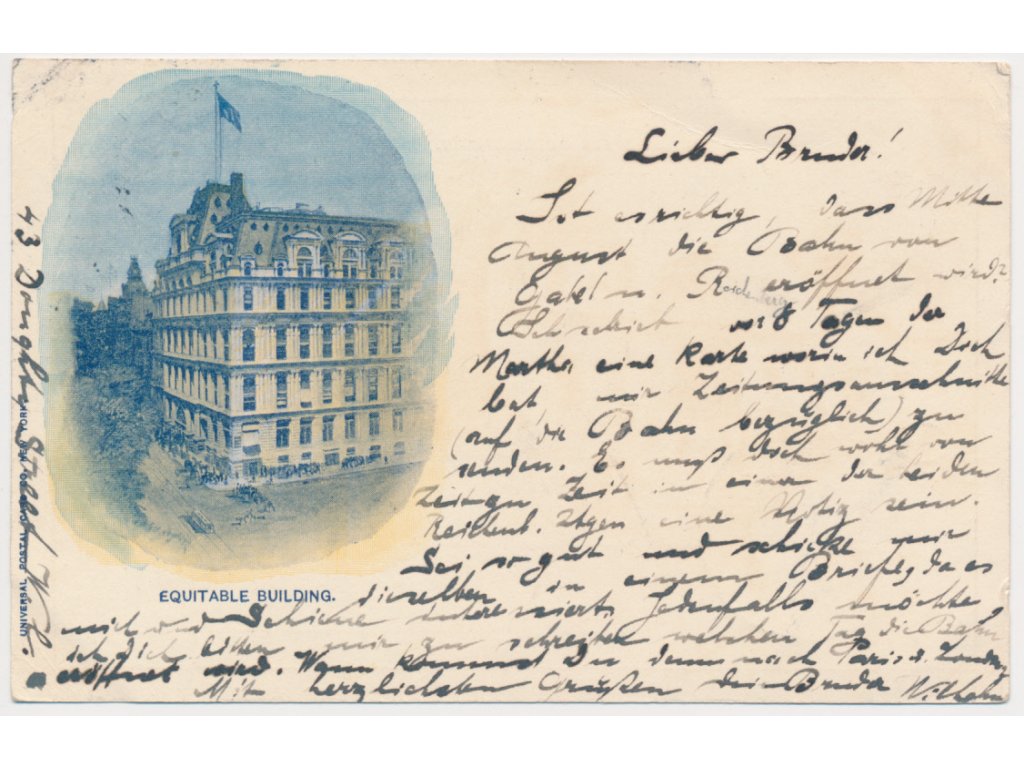 Lieber Bruder!
Ist es richtig, dass Mitte
August die Bahn von
Gabel n. Reichenberg eröffnet wird?
Ich schrieb vor 8 Tagen der
Martha eine Karte worin ich Dich
bat, mir Zeitungsausschnitte
(auf die Bahn bezüglich) zu
senden. Es muß doch wohl von
Zeit zu Zeit in einer der beiden
Reichenb. Ztgen eine Notiz sein.
Sei so gut und schicke mir
dieselben in einem Briefe, da es
mich und interessiert, Jedenfalls möchte
ich Dich bitten mir zu schreiben welchen Tag die Bahn
eröffnet wird. Wann kommst Du denn nach Paris u. London
Mit herzlichsten Grüßen dein Bruder Wilhelm
EQUITABLE BUILDING.
43 Street
UNIVERSAL POSTAL NEW YORK